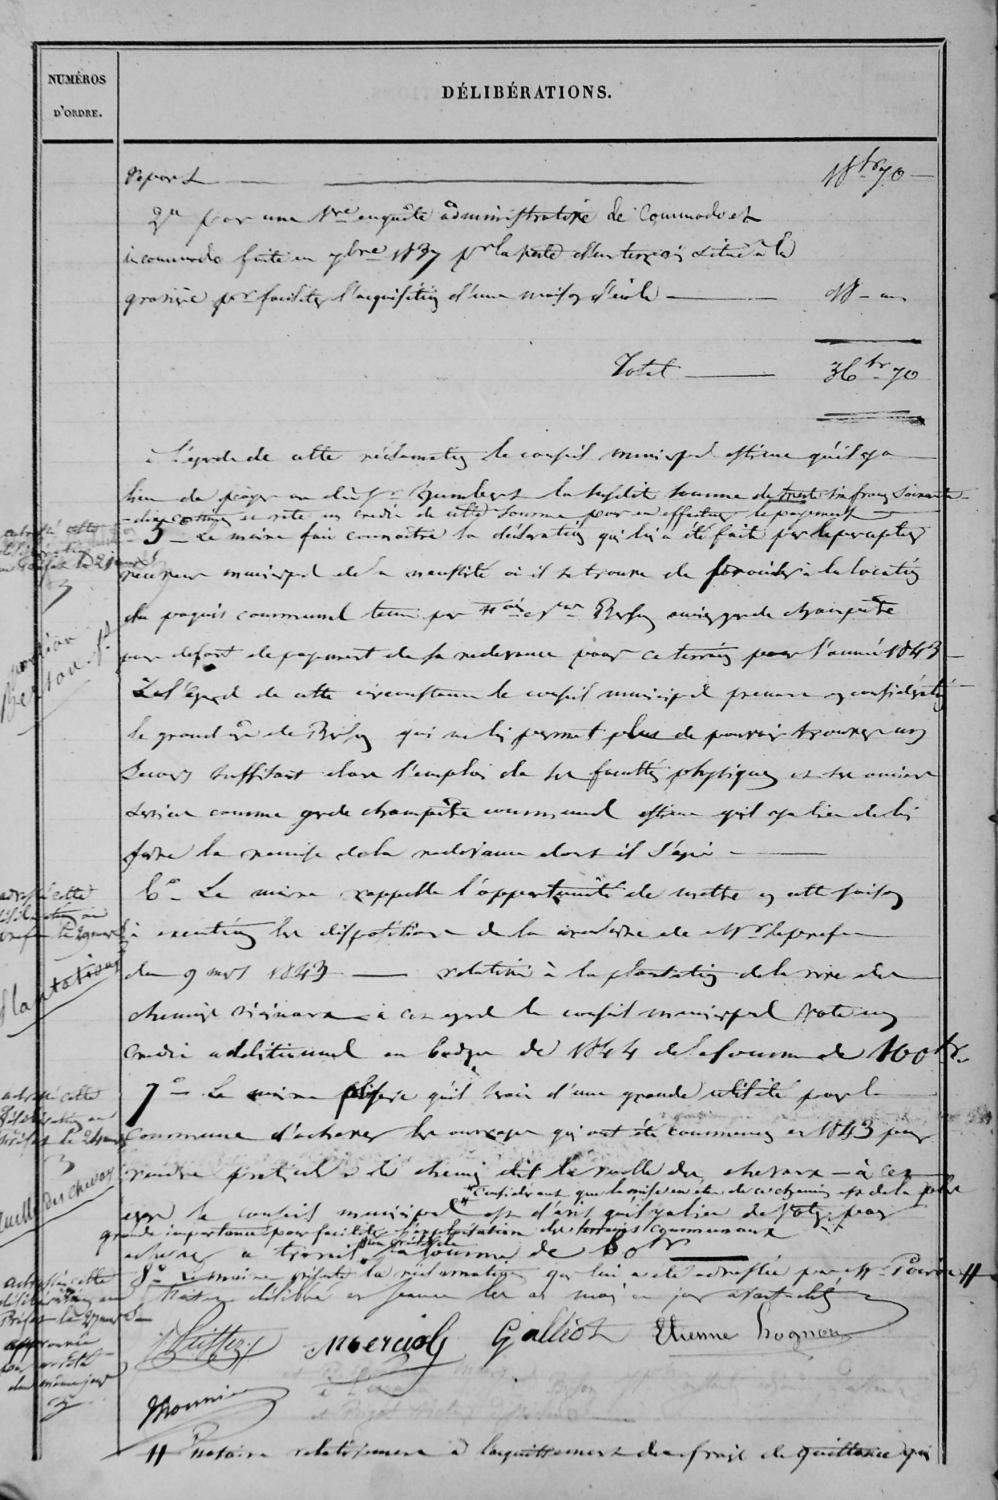 NUMÉROS
D'ORDRE.
DÉLIBÉRATIONS.
Report 18 fr 70
2° pour une autre enquête administrative de Commodo et
incommodo faite en 7bre 1837 pr la perte d'un terrain situé à la
pr faciliter l'acquisition d'une maison d'école 18
Total 36 fr 70
à l'égard de cette réclamation le conseil municipal estime qu'il y a
lieu de payer au dit Sr la susdite somme de trente six francs soixante
dix centimes et vote un crédit de cette somme pour en effectuer le payement
5 — Le maire fait connaître la déclaration qui lui a été faite par le percepteur
receveur municipal de la nécessité où il se trouve de procéder à la location
du paquis communal tenu par Berson ancien garde champêtre
pour défaut de payement de sa redevance pour ce terrain pour l'année 1843
à l'égard de cette circonstance le conseil municipal prenant en considération
le grand âge de Berson qui ne lui permet plus de pouvoir trouver un
secours suffisant dans l'emploi de ses facultés physiques et ses anciens
services comme garde champêtre communal estime qu'il y a lieu de lui
faire la remise de la redevance dont il s'agit
6° — Le maire rappelle l'opportunité de mettre en cette saison
à exécution les dispositions de la circulaire de Mr le préfet
du 9 mars 1843 relative à la plantation de la rive des
chemins vicinaux — à cet égard le conseil municipal vote un
crédit additionnel au budget de 1844 de la somme de 100 fr
7° — Le maire expose qu'il serait d'une grande utilité pour la
commune d'achever les ouvrages qui ont été commencés en 1843 pour
rendre praticable le chemin dit la ruelle des chevaux — à cet
considérant que la mise en état de ce chemin est de la plus
égard le conseil municipal est d'avis qu'il y a lieu de voter pour
grande importance pour faciliter l'exploitation des terrains communaux
achever ce travail la somme de 80 fr
8° Le maire présente la réclamation qui lui a été adressée par Mr Poirot #
Fait et délibéré en séance les an mois et jour avant dits
Mercioly Galliot Etienne
Mounier
# Notaire relativement à l'acquittement des frais de quittance qui
adressé cette
délibération
au Préfet le 2 mars
Berson
adressé cette
délibération au
Préfet le 2 mars
Plantations
adressé cette
délibération au
Préfet le 2 mars
Ruelle des chevaux
adressé cette
délibération au
Préfet le 2 mars
approuvée
par arrêté
du même jour